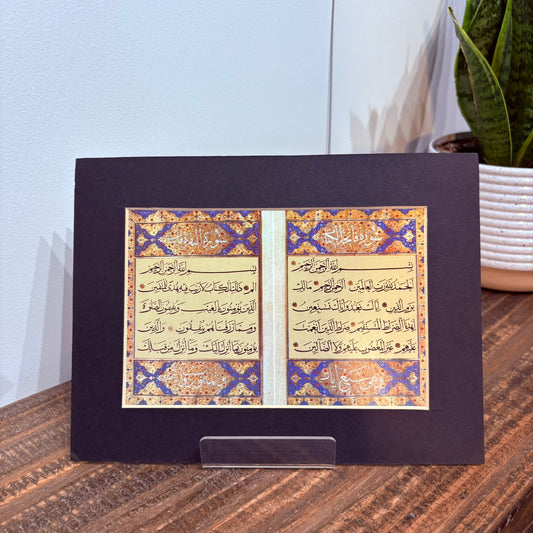 سورة فاتحة الكتاب
بسم الله الرحمن الرحيم
الحمد لله رب العالمين الرحمن الرحيم مالك
يوم الدين اياك نعبد واياك نستعين
اهدنا الصراط المستقيم صراط الذين انعمت
عليهم غير المغضوب عليهم ولا الضالين
وهي سبع ايات
سورة البقرة
بسم الله الرحمن الرحيم
الم ذلك الكتاب لا ريب فيه هدى للمتقين
الذين يؤمنون بالغيب ويقيمون الصلوة
ومما رزقناهم ينفقون والذين
يؤمنون بما انزل اليك وما انزل من قبلك